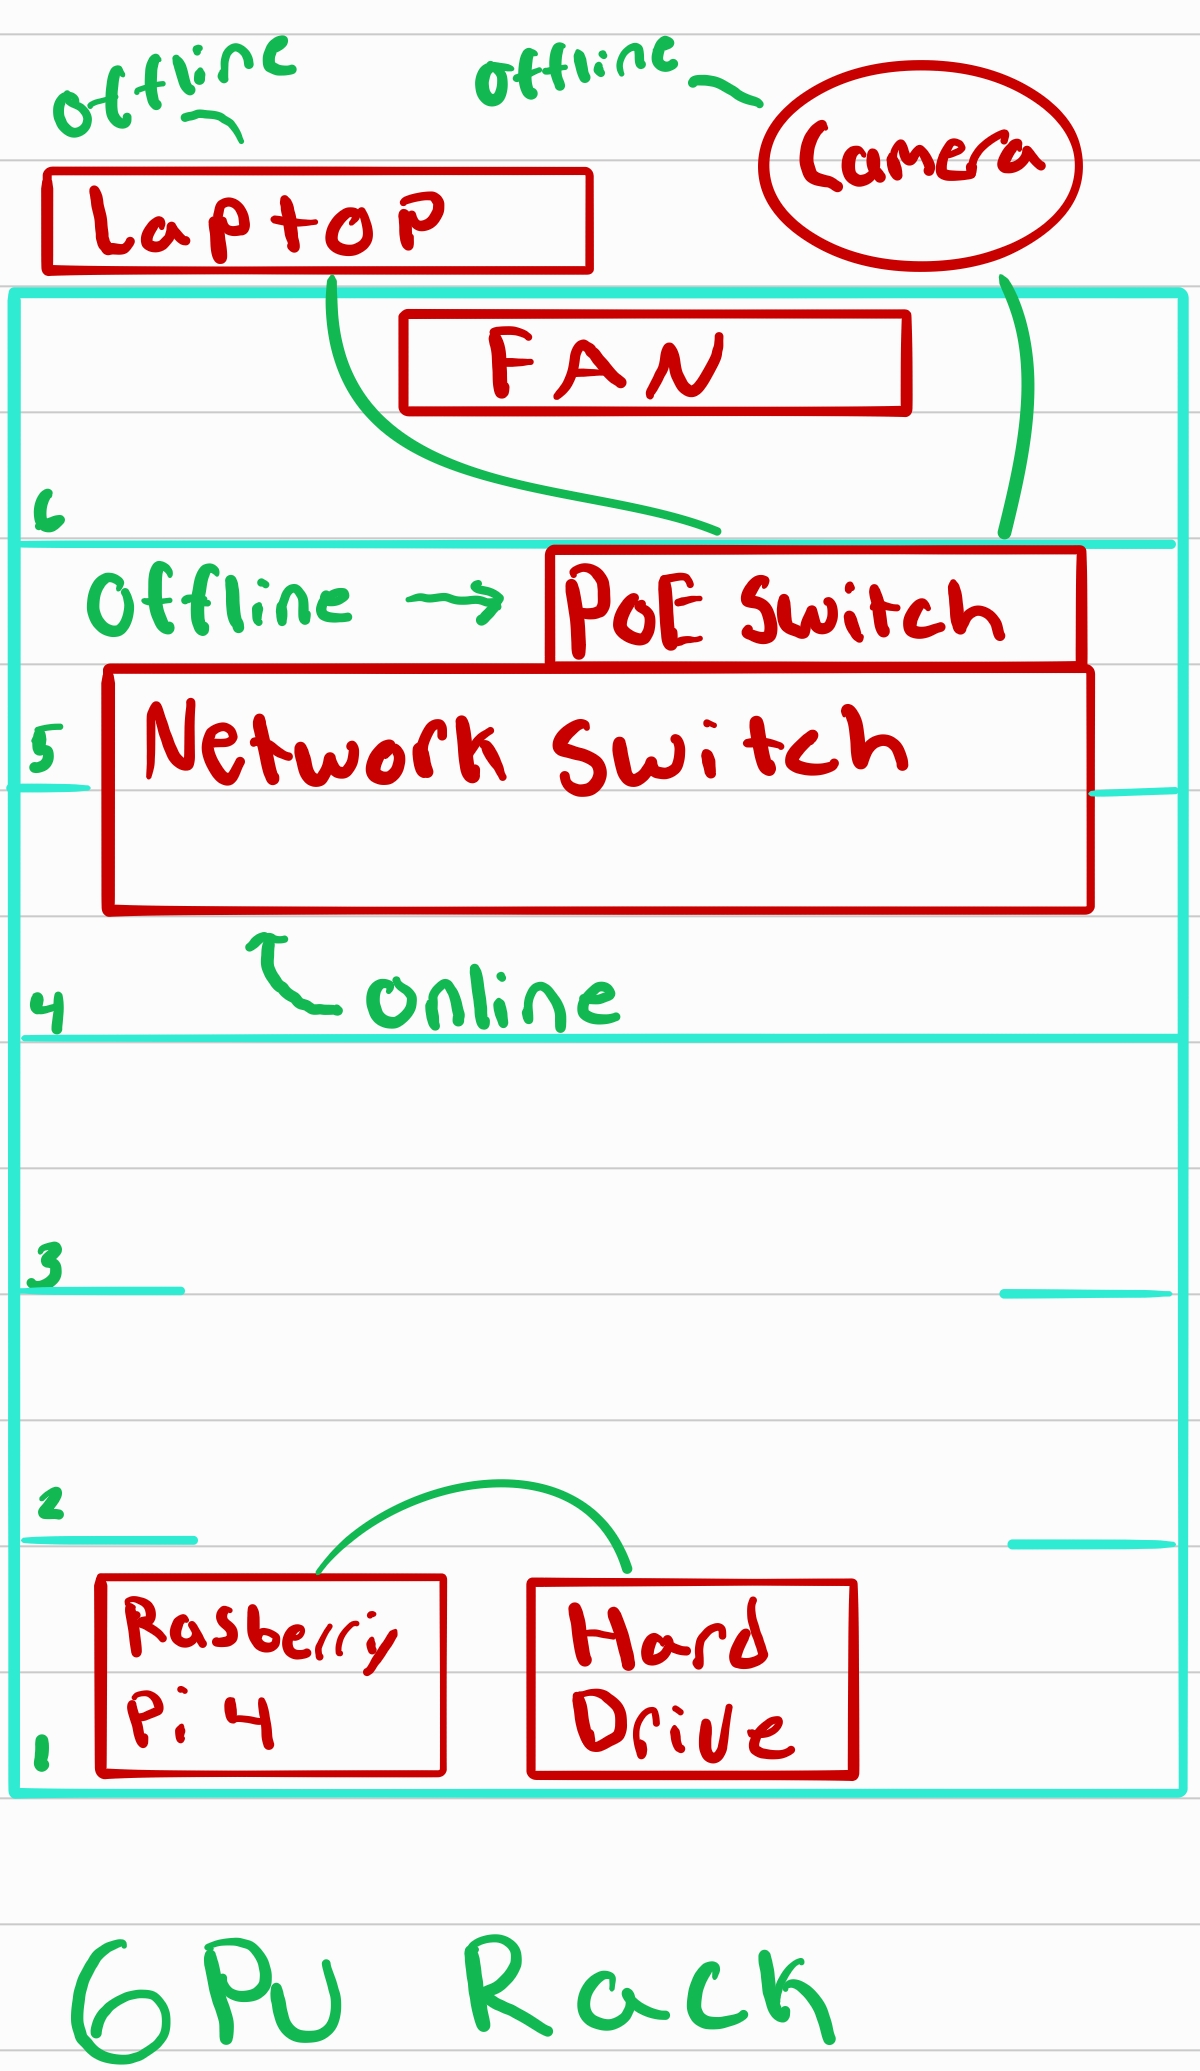 offline
offline
Camera
Laptop
FAN
6
Offline
PoE Switch
5
Network Switch
4
Online
3
2
Rasberry
Pi 4
Hard
Drive
1
6 PU Rack